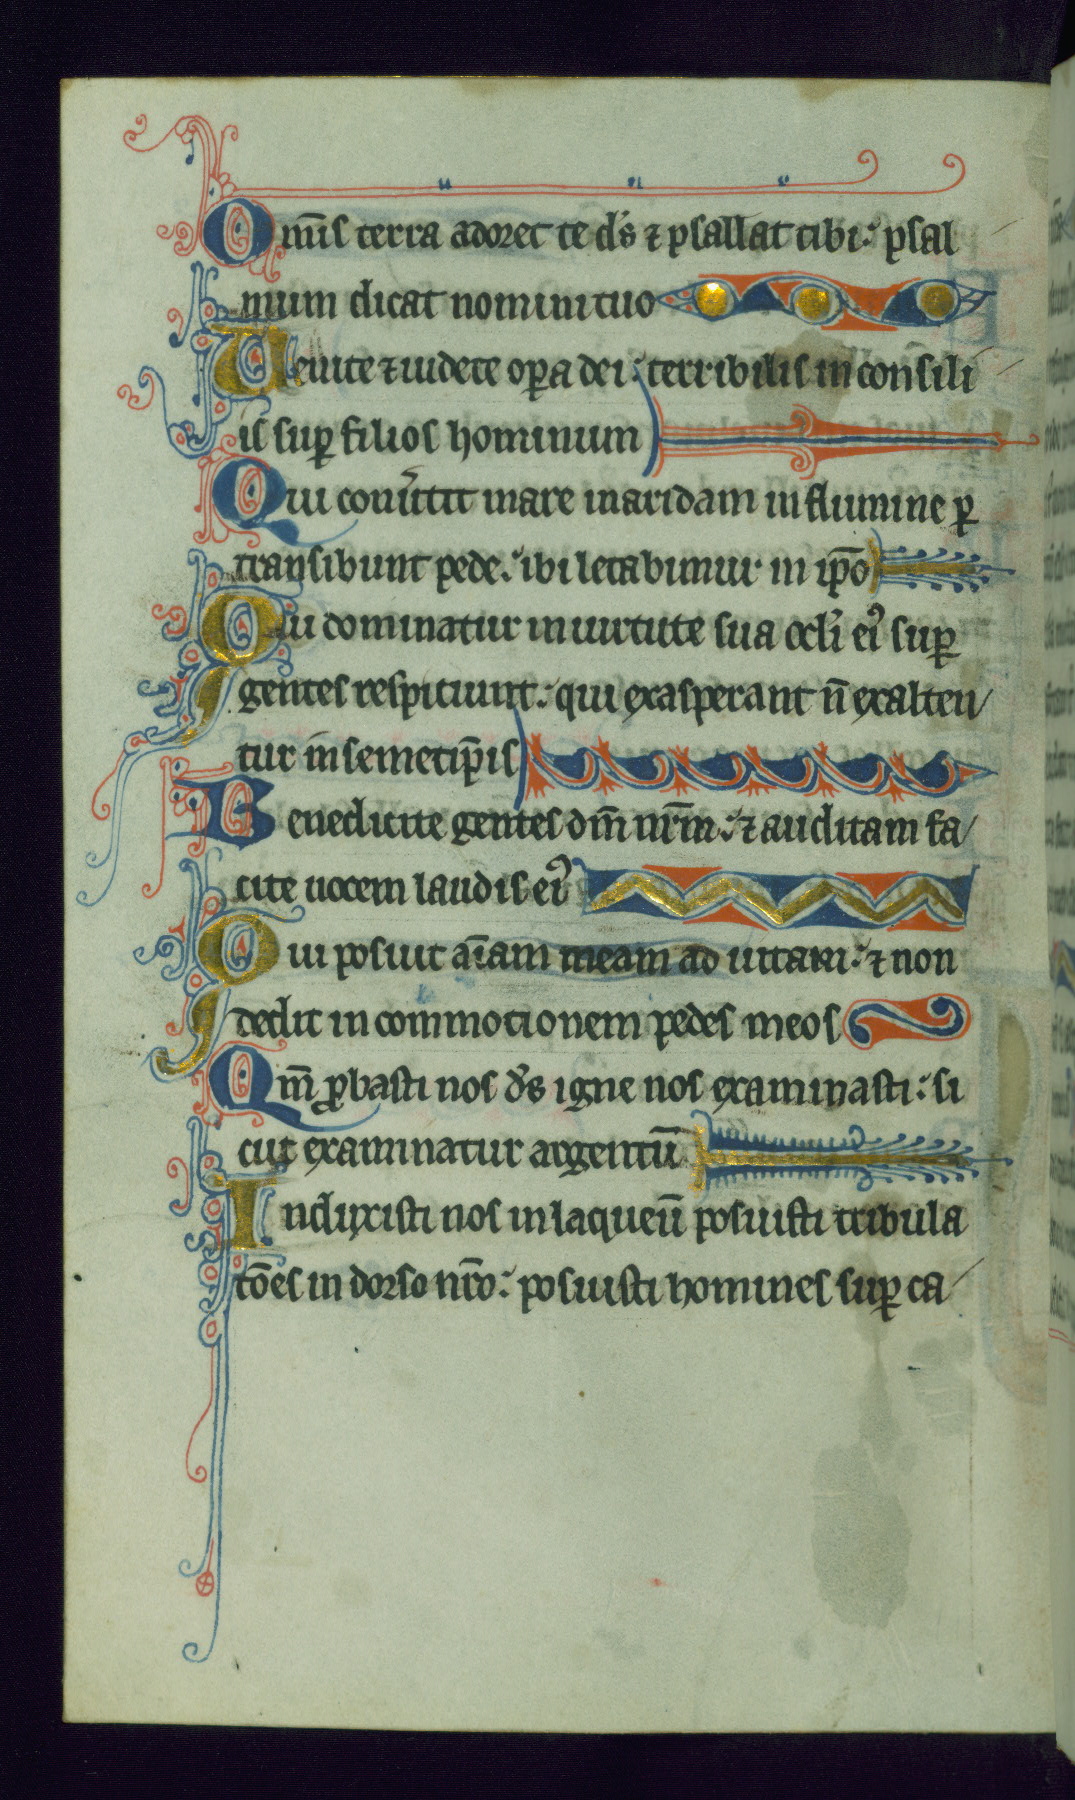 Om̄is terra adoret te d̄s ⁊ psallat tibi: psal
mum dicat nomini tuo
Uenite ⁊ uidete oꝑa dei: terribilis in consili
is suꝑ filios hominum
Qui conu̾tit mare in aridam in flumine ꝑ
transibunt pede: ibi letabimur in ip̄o
Qui dominatur in uirtute sua ocl̄i ei᾽ suꝑ
gentes respiciunt: qui exasperant n̄ exalten
tur in semetip̄is
Benedicite gentes dm̄ nr̄m: ⁊ auditam fa
cite uocem laudis ei᾽
Qui posuit ai̅am meam ad uitam: ⁊ non
dedit in commotionem pedes meos
Qm̄ ꝓbasti nos d̄s igne nos examinasti: si
cut examinatur argentū
Induxisti nos in laqueū posuisti tribula
tōes in dorso nr̄o: posuisti homines suꝑ ca